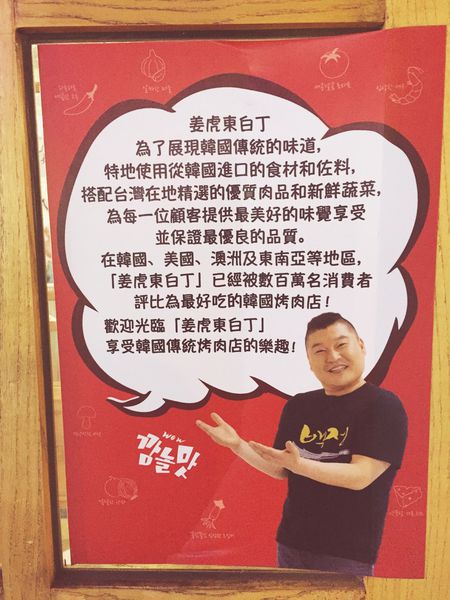 姜虎東白丁
為了展現韓國傳統的味道，
特地使用從韓國進口的食材和佐料，
搭配台灣在地精選的優質肉品和新鮮蔬菜，
為每一位顧客提供最美好的味覺享受
並保證最優良的品質。
在韓國、美國、澳洲及東南亞等地區，
「姜虎東白丁」已經被數百萬名消費者
評比為最好吃的韓國烤肉店！
歡迎光臨「姜虎東白丁」
享受韓國傳統烤肉店的樂趣！
wow
깜놀맛
백정